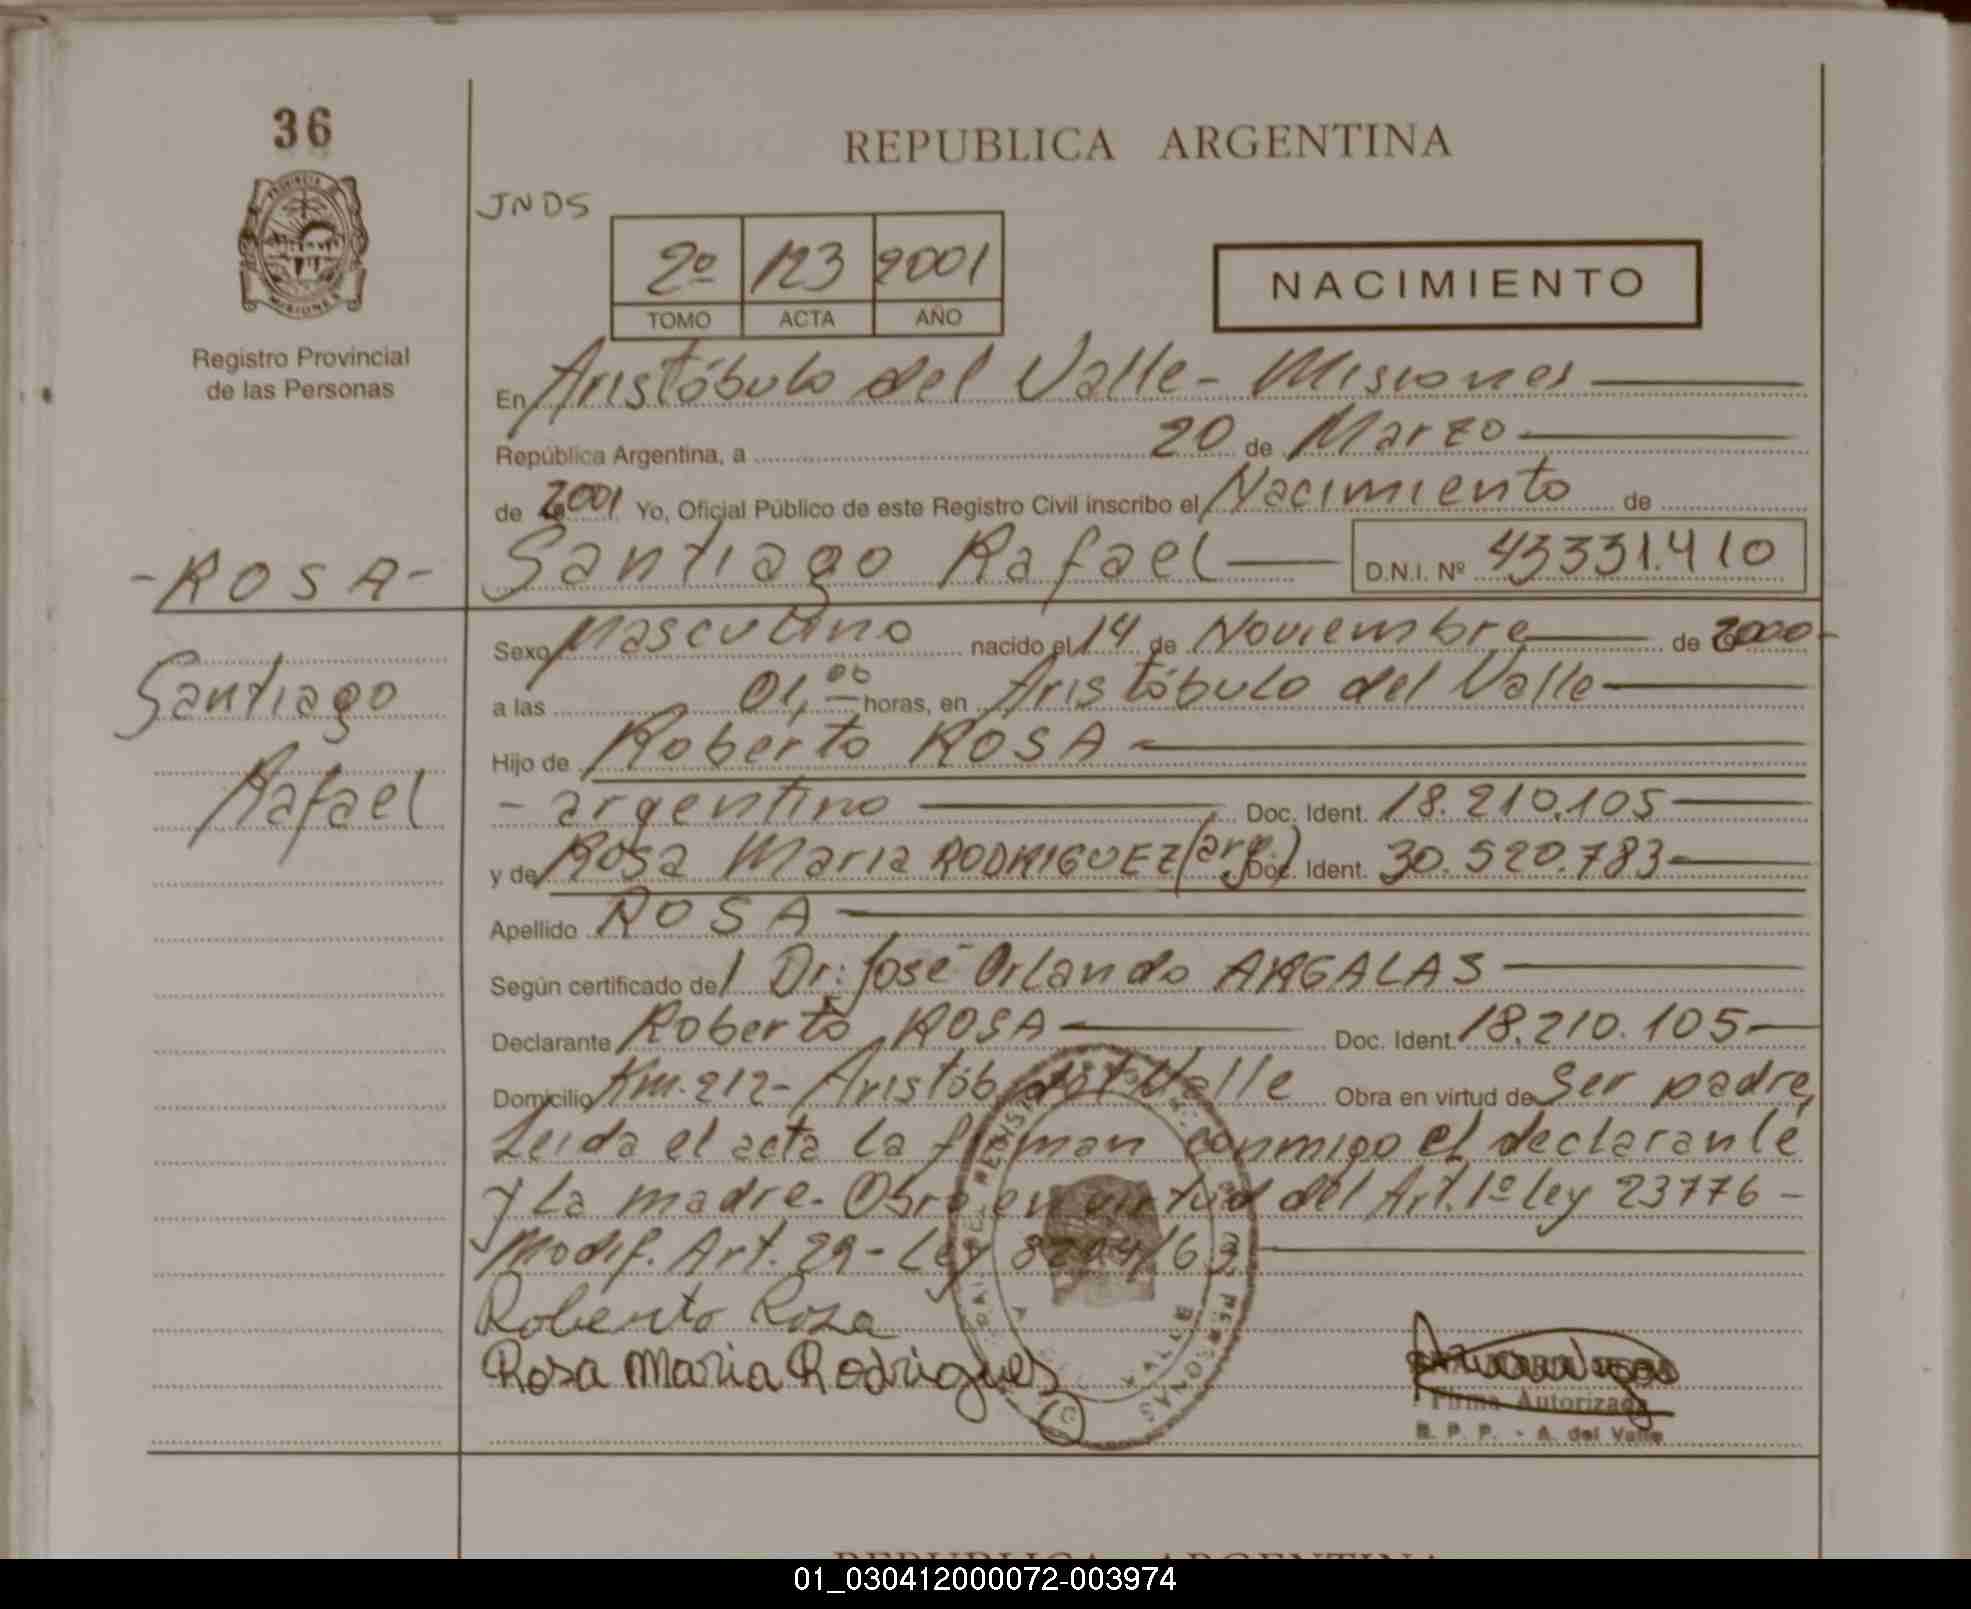 36
REPUBLICA ARGENTINA
JNDS
2º 123 2001
TOMO ACTA AÑO
NACIMIENTO
PROVINCIA DE
MISIONES
Registro Provincial
de las Personas
En Aristóbulo del Valle - Misiones
República Argentina, a 20 de Marzo
de 2001 Yo, Oficial Público de este Registro Civil inscribo el Nacimiento de
- ROSA -
Santiago Rafael D.N.I. Nº 43331.410
Santiago
Rafael
Sexo Masculino nacido el 14 de Noviembre de 2000-
a las 01,00 horas, en Aristóbulo del Valle
Hijo de Roberto ROSA
- argentino Doc. Ident. 18.210.105
y de Rosa Maria RODRIGUEZ (arg.) Doc. Ident. 30.520.783
Apellido ROSA
Según certificado del Dr: José Orlando ARGALAS
Declarante Roberto ROSA Doc. Ident. 18.210.105
Domicilio Km. 212- Aristób. del Valle Obra en virtud de Ser padre,
Leida el acta la firman conmigo el declarante
y la madre. Obro en virtud del Art. 1º ley 23776 -
Modif. Art. 29 - Ley 8204/63
Roberto Roza
Rosa Maria Rodrigues
Firma Autorizada
R. P. P. - A. del Valle
REPUBLICA ARGENTINA
01_030412000072-003974